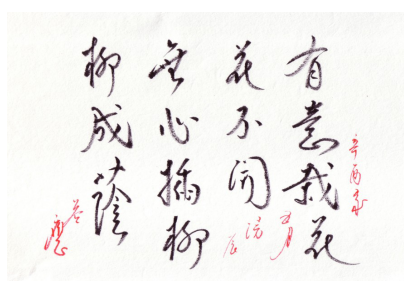 有意栽花
花不開
無心插柳
柳成蔭
辛酉年